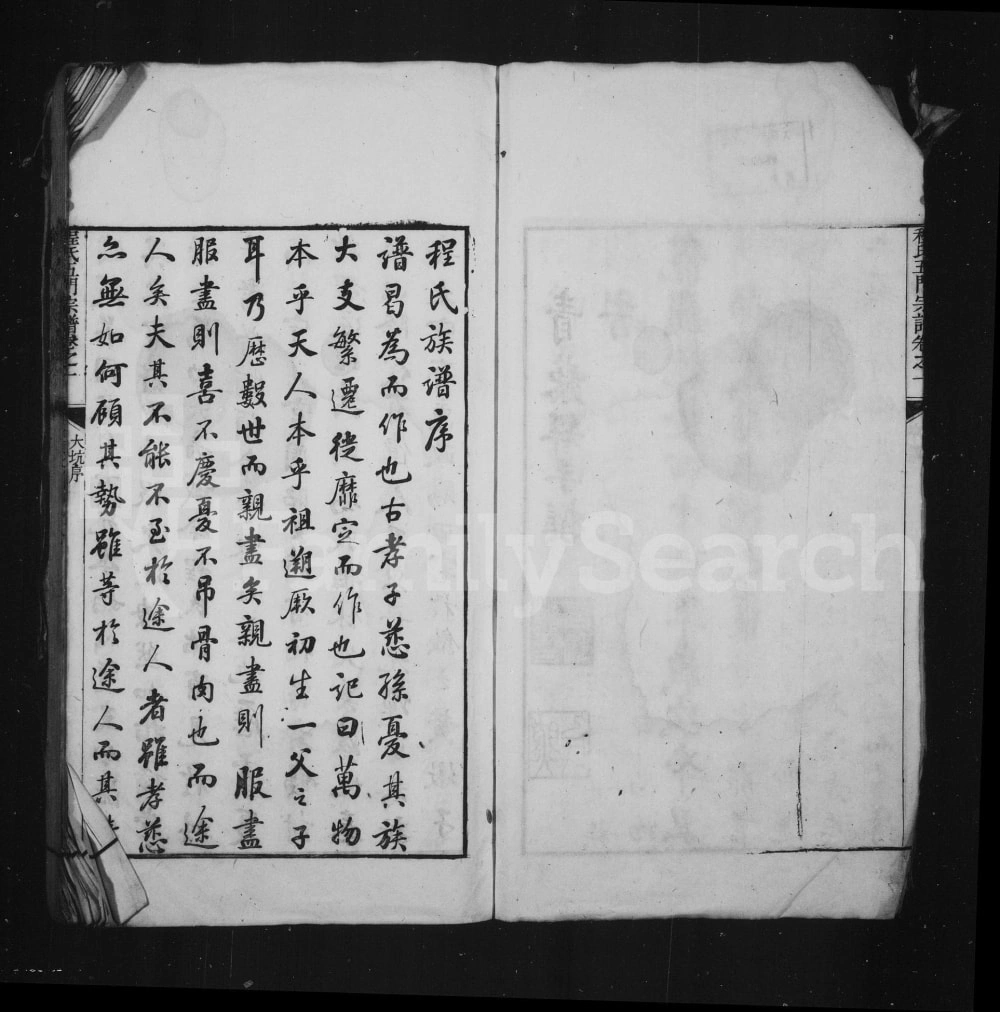 程氏五門宗譜卷之一
程氏族譜序
譜曷為而作也古孝子慈孫憂其族
大支繁遷徙靡定而作也記曰萬物
本乎天人本乎祖遡厥初生一父之子
耳乃歷數世而親盡矣親盡則服盡
服盡則喜不慶憂不吊骨肉也而途
人矣夫其不能不至於途人者雖孝慈
亦無如何顧其勢雖等於途人而其
程氏五門宗譜卷之一
大坑序
FamilySearch